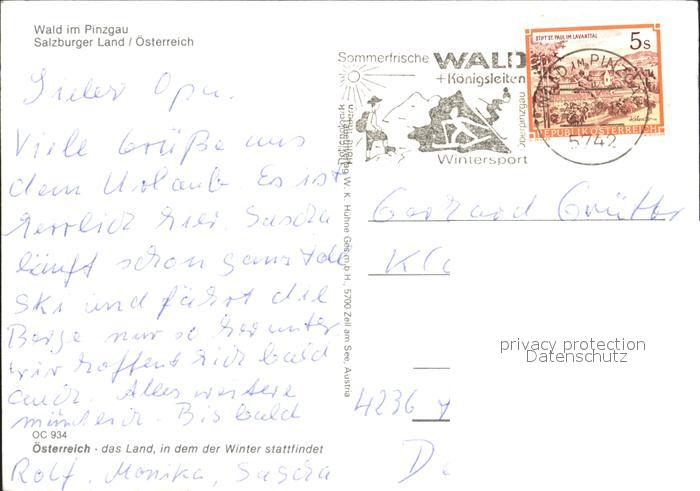 Wald im Pinzgau
Salzburger Land / Österreich
Lieber Opa.
Viele Grüße aus
dem Urlaub. Es ist
herrlich hier. Sascha
läuft schon ganz toll
Ski und fährt die
Berge nur so herunter
wir hoffen ich bald
auch. Alles weitere
mündlich. Bis bald
OC 934
Österreich - das Land, in dem der Winter stattfindet
Rolf, Monika, Sascha
W. K. Hühne Ges.m.b.H., 5700 Zell am See, Austria
Sommerfrische WALD
+Königsleiten
Oberpinzgau
Wintersport
STIFT ST. PAUL IM LAVANTTAL
5s
REPUBLIK ÖSTERREICH
WALD IM PINZGAU
5742
Gerhard
Kl
4236
De
privacy protection
Datenschutz